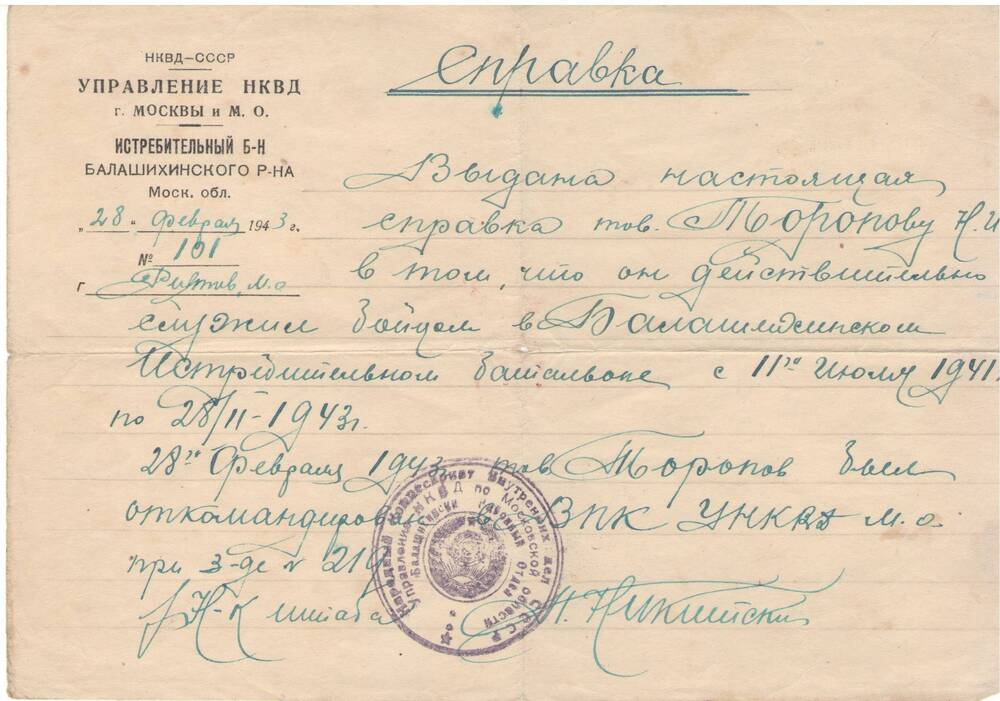 НКВД–СССР
УПРАВЛЕНИЕ НКВД
г. МОСКВЫ и М. О.
ИСТРЕБИТЕЛЬНЫЙ Б-Н
БАЛАШИХИНСКОГО Р-НА
Моск. обл.
„28“ февраля 1943 г.
№ 101
г Реутов, М.О
Справка
Выдана настоящая
справка тов. Торопову Н.И
в том, что он действительно
служил бойцом в Балашихинском
Истребительном батальоне с 11го июля 1941г.
по 28/II-1943г.
28го февраля 1943 тов Торопов был
откомандирован ЗПК УНКВД М.О.
при з-де № 219
Н-к штаба Никитский
Народный Комиссариат Внутренних дел СССР
Управление НКВД по Московской области
Балашихинский Районный Отдел